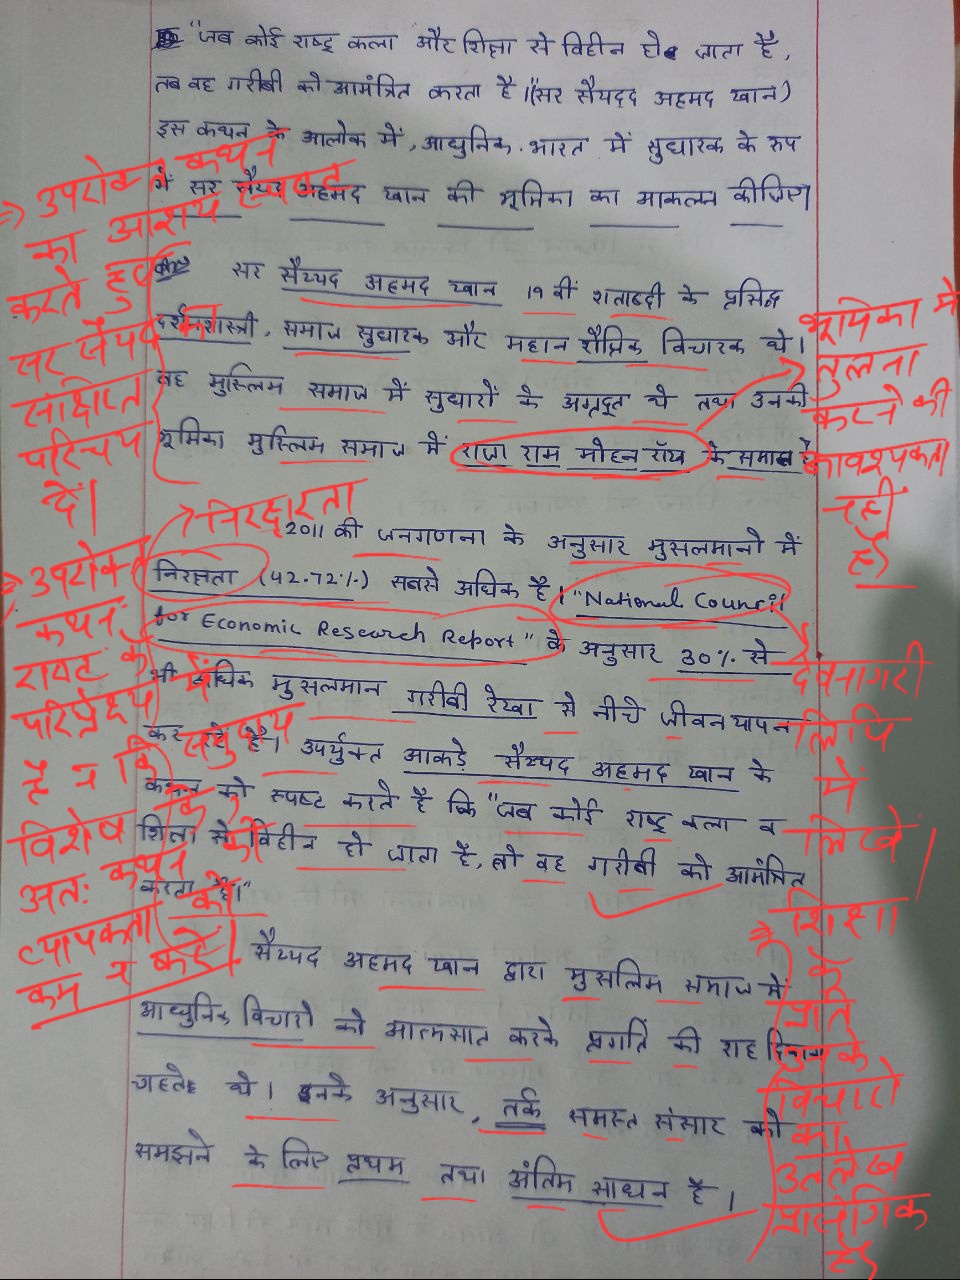 "जब कोई राष्ट्र कला और शिक्षा से विहीन हो जाता है,
तब वह गरीबी को आमंत्रित करता है।"(सर सैयदद अहमद खान)
इस कथन के आलोक में, आधुनिक भारत में सुधारक के रुप
में सर सैयद अहमद खान की भूमिका का आकलन कीजिए।
=> उपरोक्त कथन
का आशय स्पष्ट
करते हुए
सर सैयद का
संक्षिप्त
परिचय
दें।
सर सैय्यद अहमद खान 19 वीं शताब्दी के प्रसिद्ध
दर्शनशास्त्री, समाज सुधारक और महान शैक्षिक विचारक थे।
वह मुस्लिम समाज में सुधारों के अग्रदूत थे तथा उनकी
भूमिका मुस्लिम समाज में राजा राम मोहन रॉय के समान है
भूमिका में
तुलना
करने की
आवश्यकता
नहीं
है।
निरक्षरता
2011 की जनगणना के अनुसार मुसलमानो में
निरक्षता (42.72%) सबसे अधिक है। "National Council
for Economic Research Report" के अनुसार 30% से
भी अधिक मुसलमान गरीबी रेखा से नीचे जीवनयापन
कर रहे है। उपर्युक्त आकड़े सैय्यद अहमद खान के
कथन को स्पष्ट करते है कि "जब कोई राष्ट्र कला व
शिक्षा से विहीन हो जाता है, तो वह गरीबी को आमंत्रित
करता है।"
=> उपरोक्त
कथन
राष्ट्र के
परिप्रेक्ष्य में
है न कि समुदाय
विशेष के
अतः कथन की
व्यापकता को
कम न करें।
देवनागरी
लिपि
में
लिखें।
सैय्यद अहमद खान द्वारा मुसलिम समाज में
आधुनिक विचारो को आत्मसात करके प्रगति की राह दिखाना
चाहते थे। इनके अनुसार, तर्क समस्त संसार को
समझने के लिए प्रथम तथा अंतिम साधन है।
=> शिक्षा
के
प्रति
उनके
विचारो
का
उल्लेख
प्रासंगिक
है।